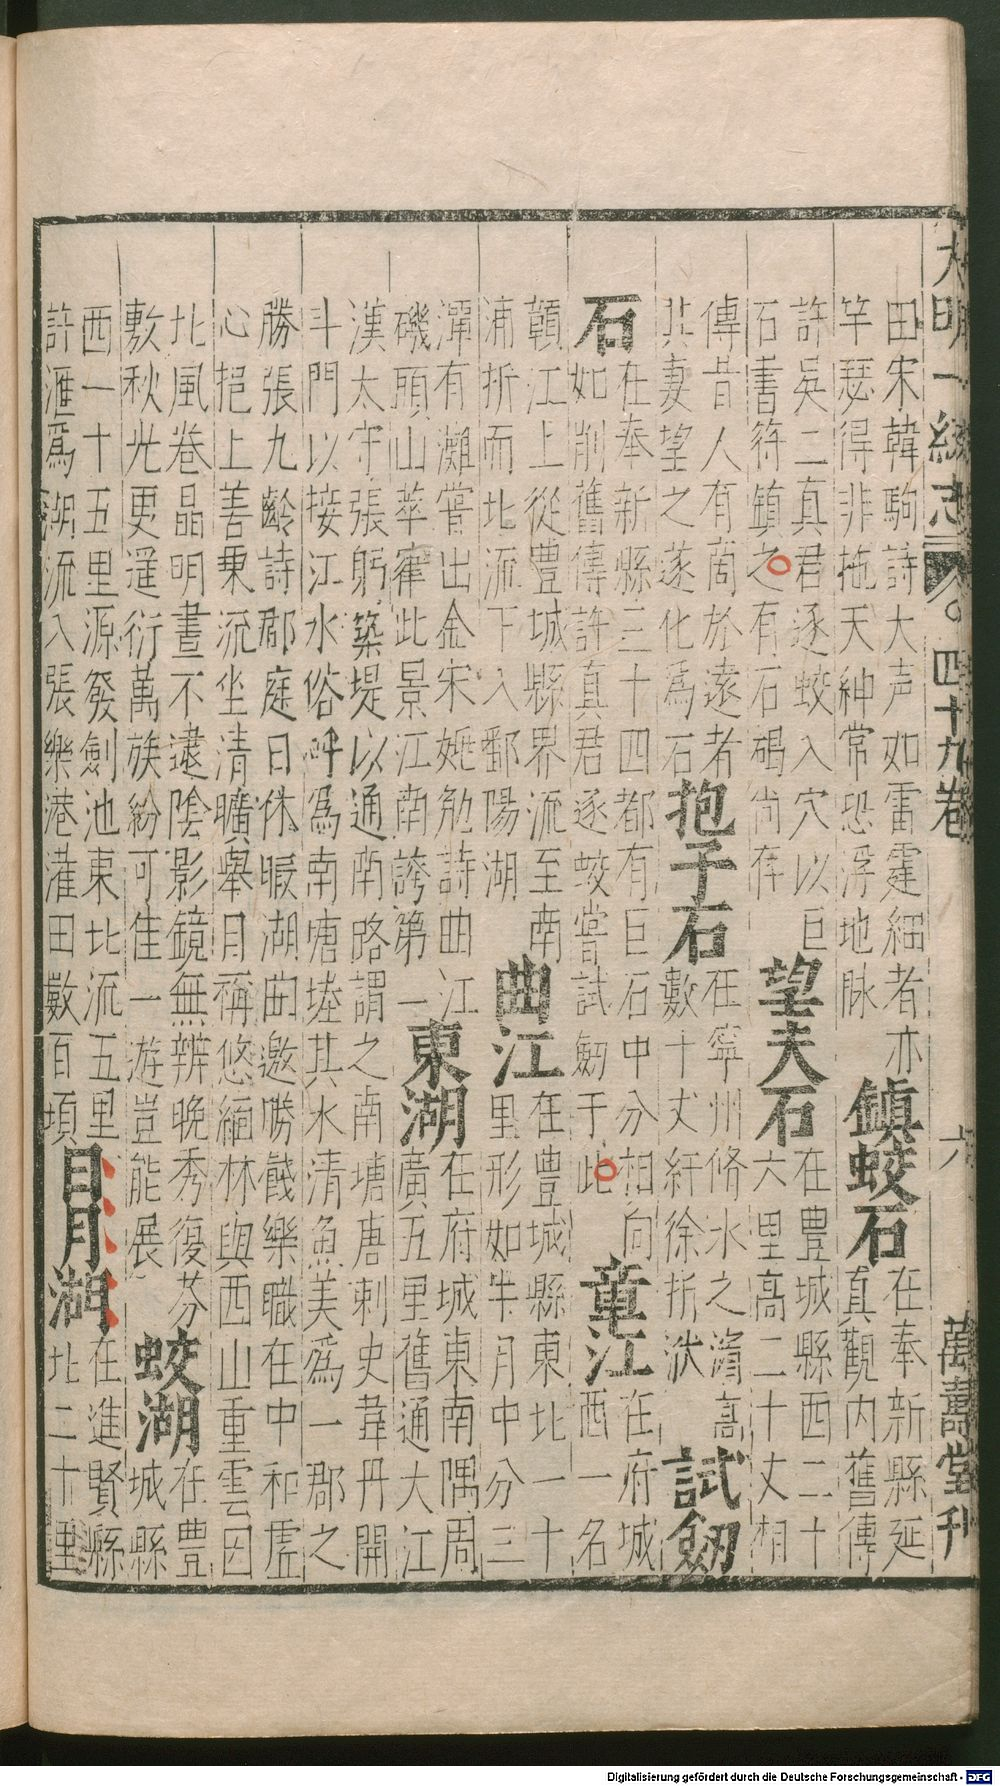 大明一統志 四十九卷 六 萬壽堂刊
田宋韓駒詩大声如雷霆細者亦
竽瑟得非拖天紳常恐浮地脉
鎮蛟石
在奉新縣延
真觀内舊傳
許吳二真君逐蛟入穴以巨
石書符鎮之有石碣尚存
望夫石
在豊城縣西二十
六里高二十丈相
傳昔人有啇於遠者
其妻望之遂化為石
抱子石
在寧州脩水之濱高
數十丈紆徐折洑
試劒
石
在奉新縣三十四都有巨石中分相向
如削舊傳許真君逐蛟嘗試劒于此
章江
在府城
西一名
贑江上從豊城縣界流至南
浦折而北流下入鄱陽湖
曲江
在豊城縣東北一十
里形如半月中分三
潭有灘嘗出金宋姚勉詩曲江
磯頭山萃此景江南誇第一
東湖
在府城東南隅周
廣五里舊通大江
漢太守張躬築堤以通南路謂之南塘唐刺史韋丹開
斗門以接江水俗呼為南塘塍其水清魚美為一郡之
勝張九齡詩郡庭日休暇湖曲邀勝餞樂職在中和虛
心挹上善乗流坐清曠舉目稱悠緬林與西山重雲因
北風卷晶明晝不逮陰影鏡無辨晚秀復芬
敷秋光更遥衍萬族紛可佳一遊豈能展
蛟湖
在豊
城縣
西一十五里源發劍池東北流五里
許滙為湖流入張樂港灌田數百頃
日月湖
在進賢縣
北二十里
Digitalisierung gefördert durch die Deutsche Forschungsgemeinschaft - DFG